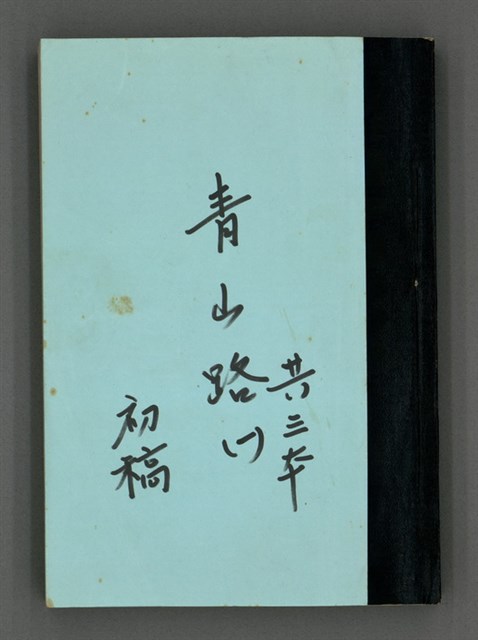 共三本
青山路(一)
初稿